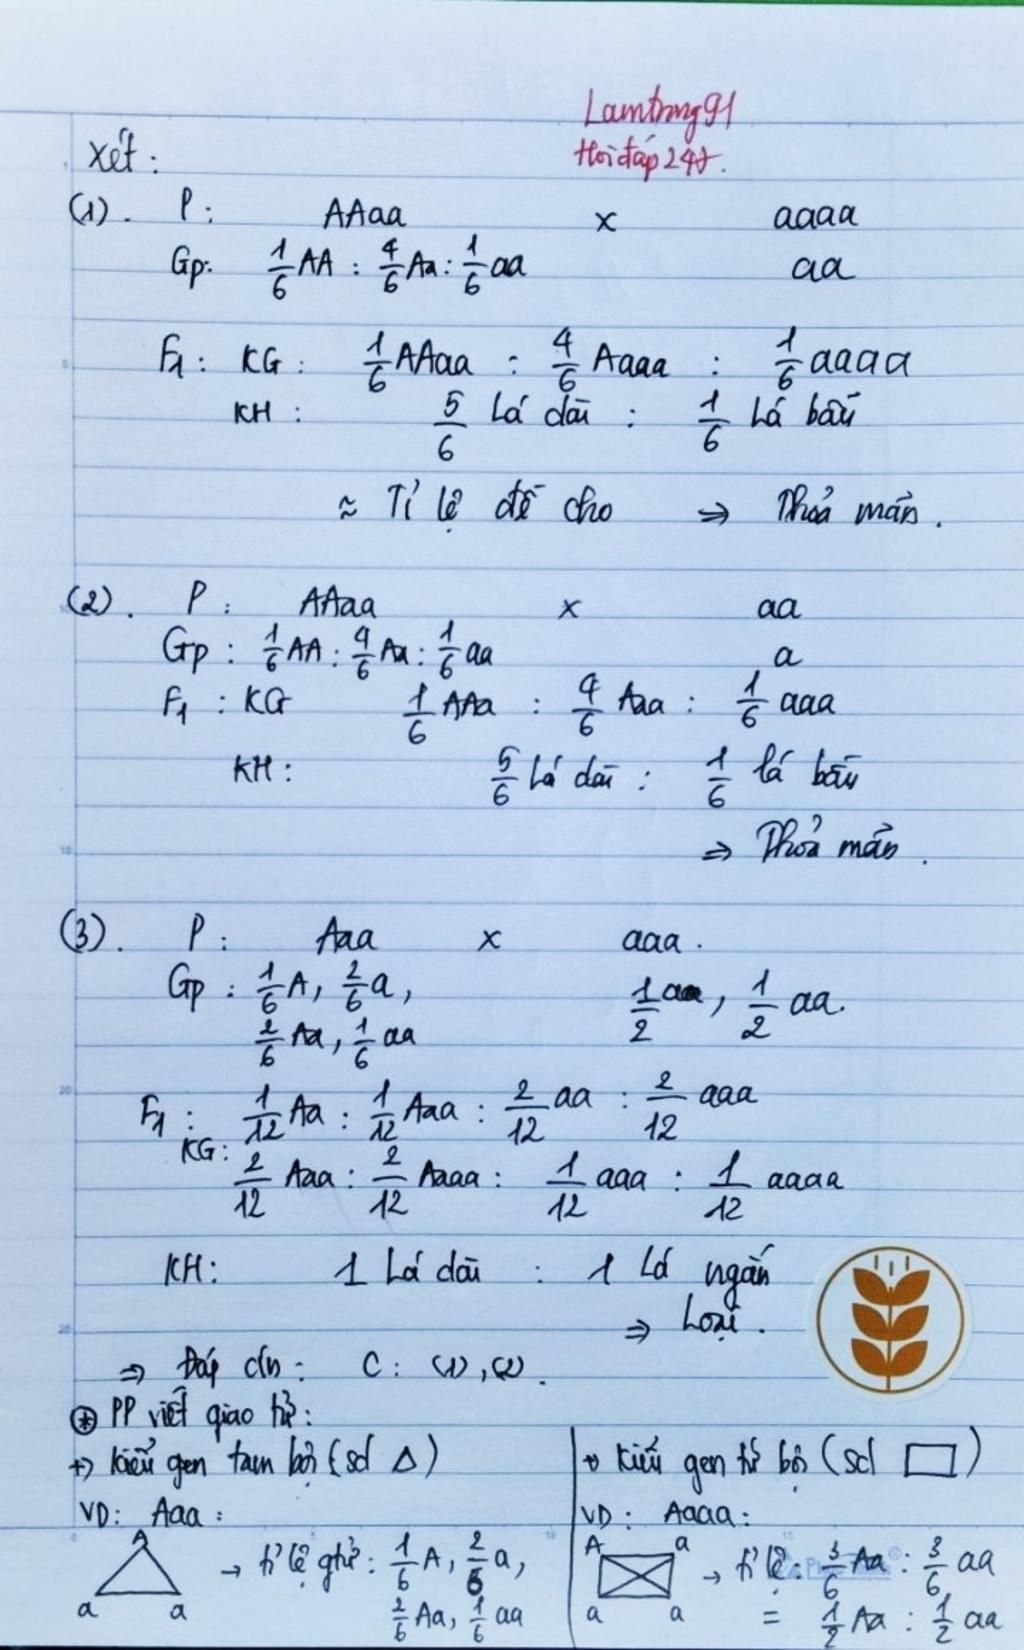 Lamtrng91
Hỏi đáp 247.
Xét :
(1). P: AAaa x aaaa
Gp: 1/6 AA : 4/6 Aa : 1/6 aa aa
F1 : KG : 1/6 AAaa : 4/6 Aaaa : 1/6 aaaa
KH : 5/6 Lá dài : 1/6 Lá bầu
≈ Tỉ lệ đề cho ⇒ Thoả mãn .
(2). P : AAaa x aa
Gp : 1/6 AA : 4/6 Aa : 1/6 aa a
F1 : KG 1/6 AAa : 4/6 Aaa : 1/6 aaa
KH : 5/6 Lá dài : 1/6 lá bầu
⇒ Thỏa mãn .
(3). P : Aaa x aaa .
Gp : 1/6 A, 2/6 a, 1/2 , 1/2 aa.
2/6 Aa, 1/6 aa
F1 : 1/12 Aa : 1/12 Aaa : 2/12 aa : 2/12 aaa
KG: 2/12 Aaa : 2/12 Aaaa : 1/12 aaa : 1/12 aaaa
KH: 1 Lá dài : 1 Lá ngắn
⇒ Loại .
⇒ Đáp án : C : (1), (2) .
* PP viết giao tử :
+> kiểu gen tam bội (sd △)
VD: Aaa :
A
→ tỉ lệ gtử : 1/6 A, 2/6 a,
a a 2/6 Aa, 1/6 aa
+> kiểu gen tứ bội (sd ▭)
VD: Aaaa :
A a
→ tỉ lệ : 3/6 Aa : 3/6 aa
a a = 1/2 Aa : 1/2 aa